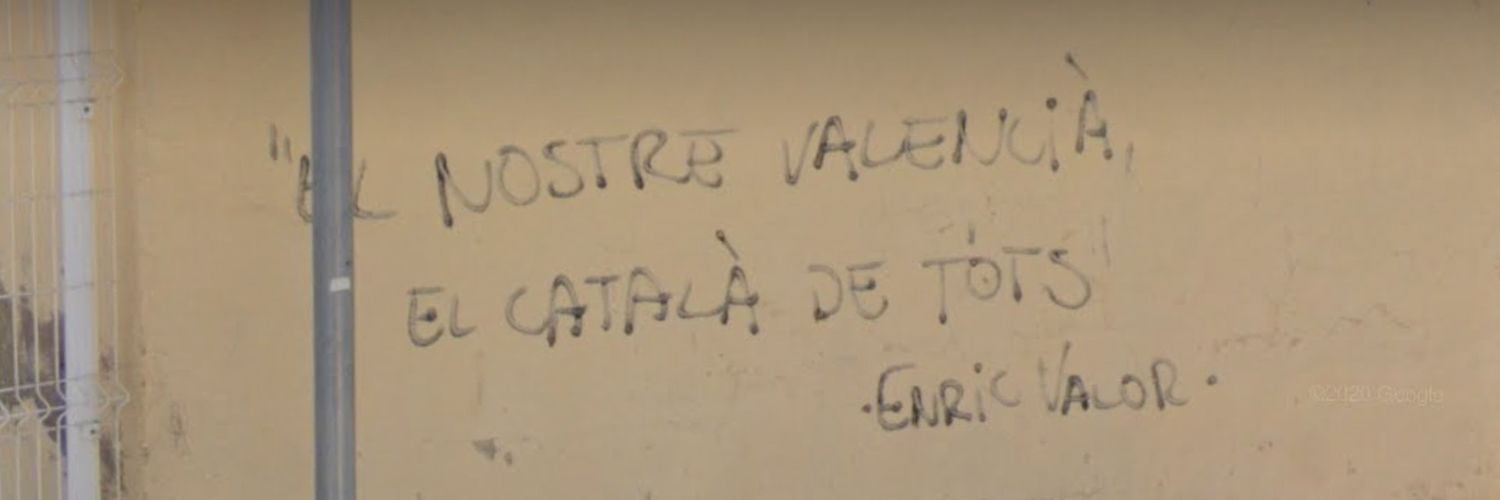 "EL NOSTRE VALENCIÀ,
EL CATALÀ DE TOTS"
·ENRIC VALOR·
©2020 Google